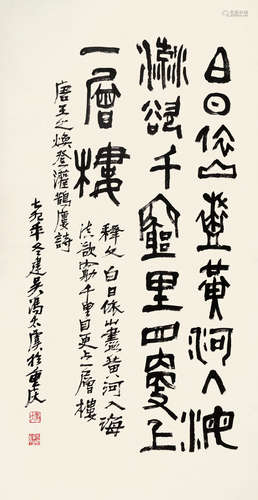 白日依山盡黃河入海
流欲千窮里目更上
一層樓
釋文 白日依山盡黃河入海
流欲窮千里目更上一層樓
唐王之煥登灌鵲廔詩
年冬建吴馮太虞於重庆